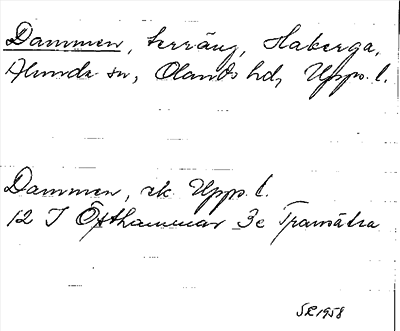 Dammen, terräng, Haberga,
Alunda sn, Olands hd, Upps. l.
Dammen, rk Upps. l.
12 I Östhammar 3e Tramätra
SR 1958